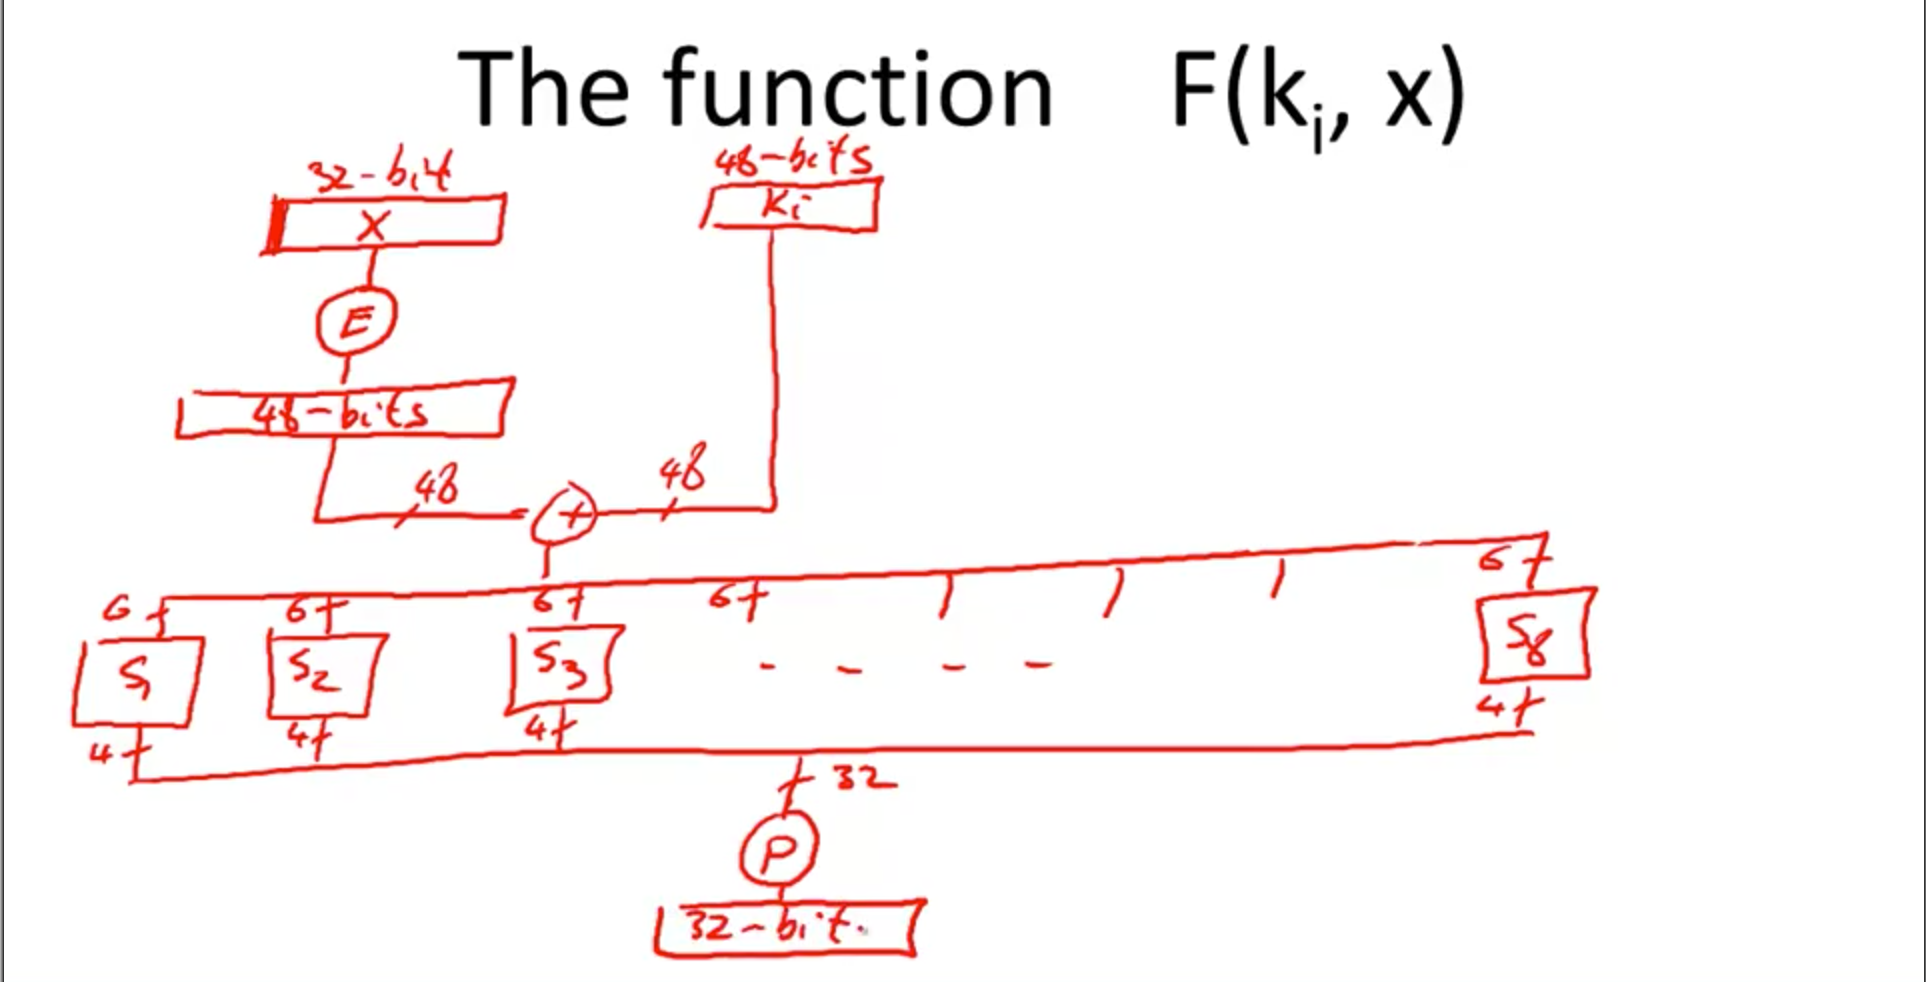 The function F(kᵢ, x)
32-bit 48-bits
X Ki
E
48-bits
48 + 48
6 6 6 6 6
S1 S2 S3 - - - - S8
4 4 4 4
32
P
32-bit.